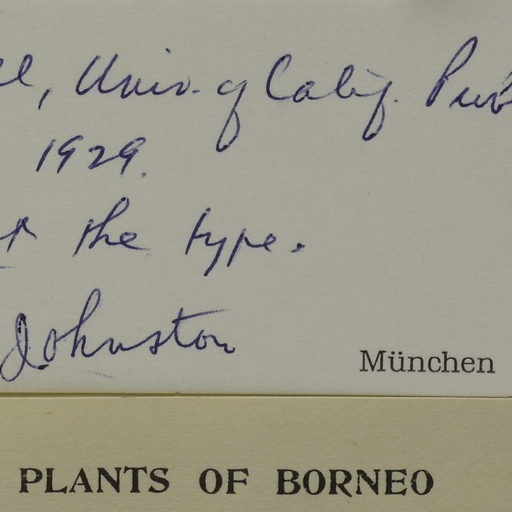 Univ. of Calif. Pub
1929.
the type.
Johnston
München
PLANTS OF BORNEO